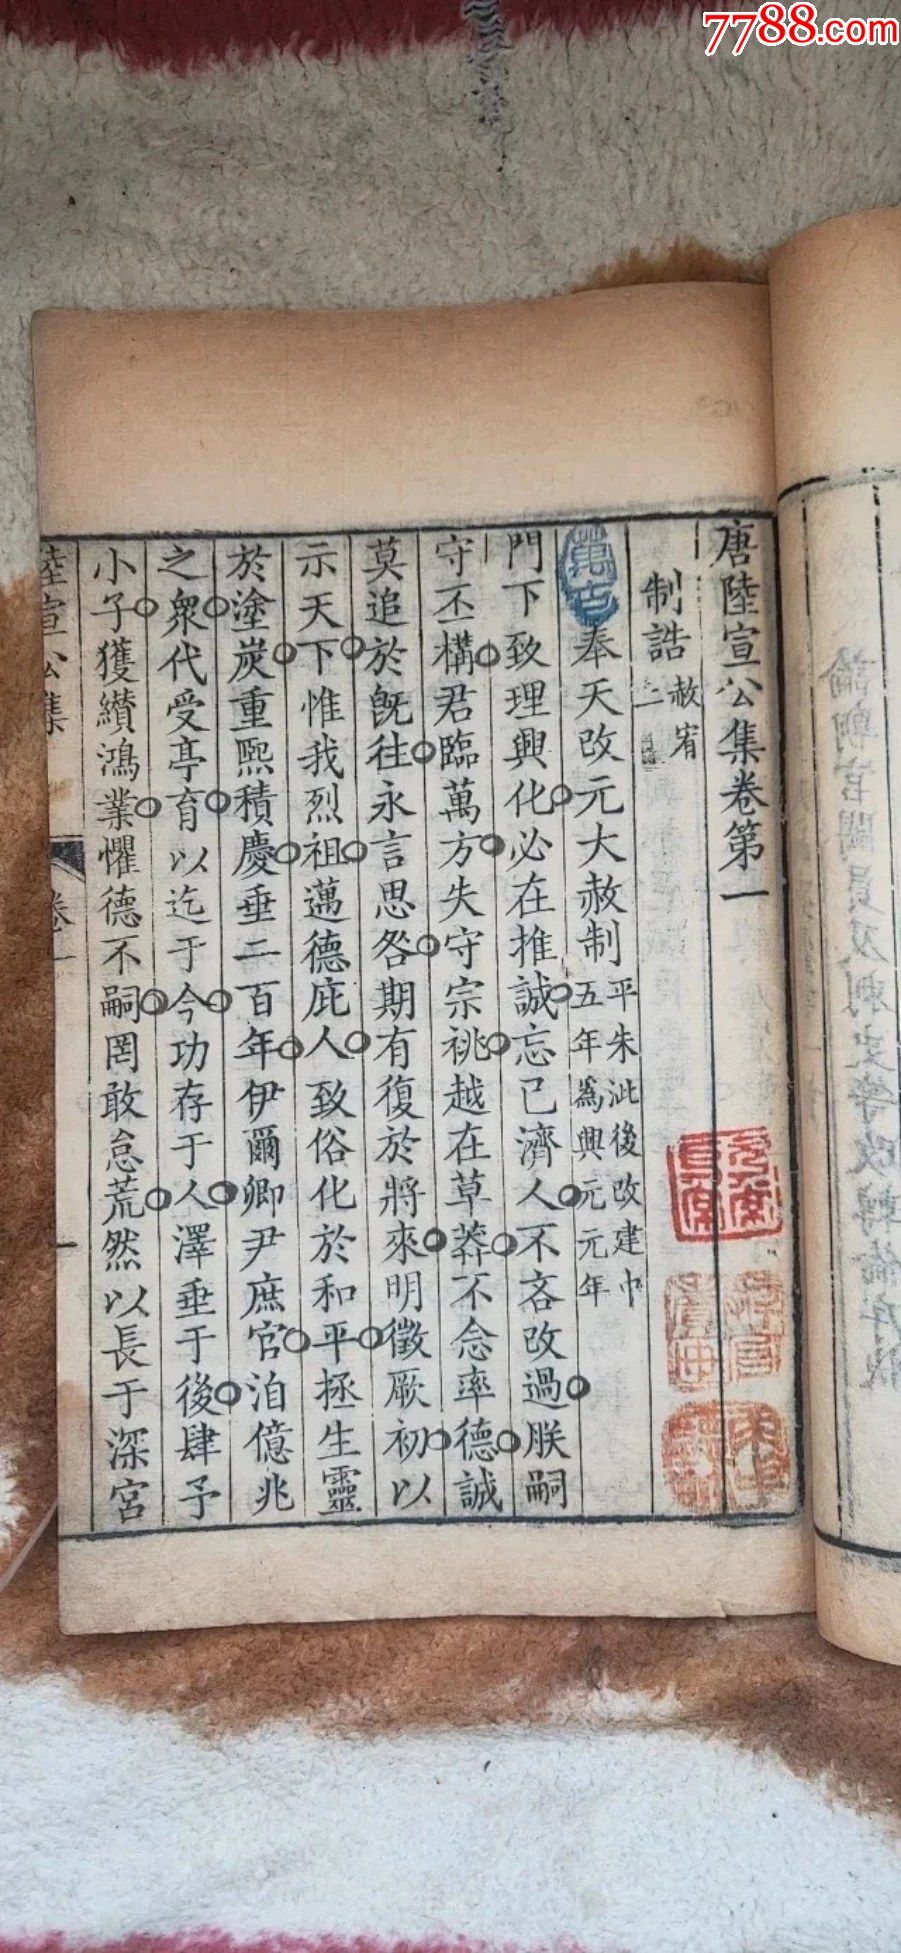 7788.com
唐陸宣公集卷第一
制誥 赦宥
一
奉天改元大赦制 平朱泚後改建中
五年為興元元年
門下致理興化必在推誠忘已濟人不吝改過朕嗣
守丕構君臨萬方失守宗祧越在草莽不念率德誠
莫追於旣往永言思咎期有復於將來明徵厥初以
示天下惟我烈祖邁德庇人致俗化於和平拯生靈
於塗炭重熙積慶垂二百年伊爾卿尹庶官洎億兆
之衆代受亭育以迄于今功存于人澤垂于後肆予
小子獲纘鴻業懼德不嗣罔敢怠荒然以長于深宮
陸宣公集
卷一
萬古